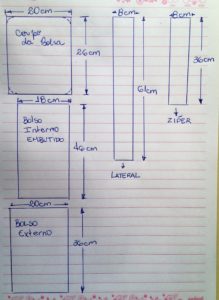 20cm
8cm
8cm
Corpo
da Bolsa
26cm
36cm
18cm
Bolso
Interno
EMBUTIDO
46cm
61cm
ZIPER
LATERAL
20cm
BOLSO
Externo
36cm